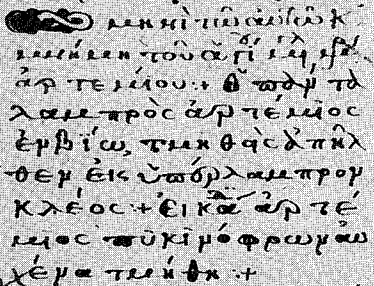 μηνὶ τῷ αὐτῷ κ
μνήμη τοῦ ἁγί
ἀρτεμίου + Ὁ πάντα
λαμπρὸς ἀρτέμιος
ἐν βίῳ, τμηθεὶς ἀπῆλ
θεν εἰς ὑπέρλαμπρον
κλέος + Εἰκάδι ἀρτέ
μιος πυκινόφρων αὐ
χένα τμήθη +